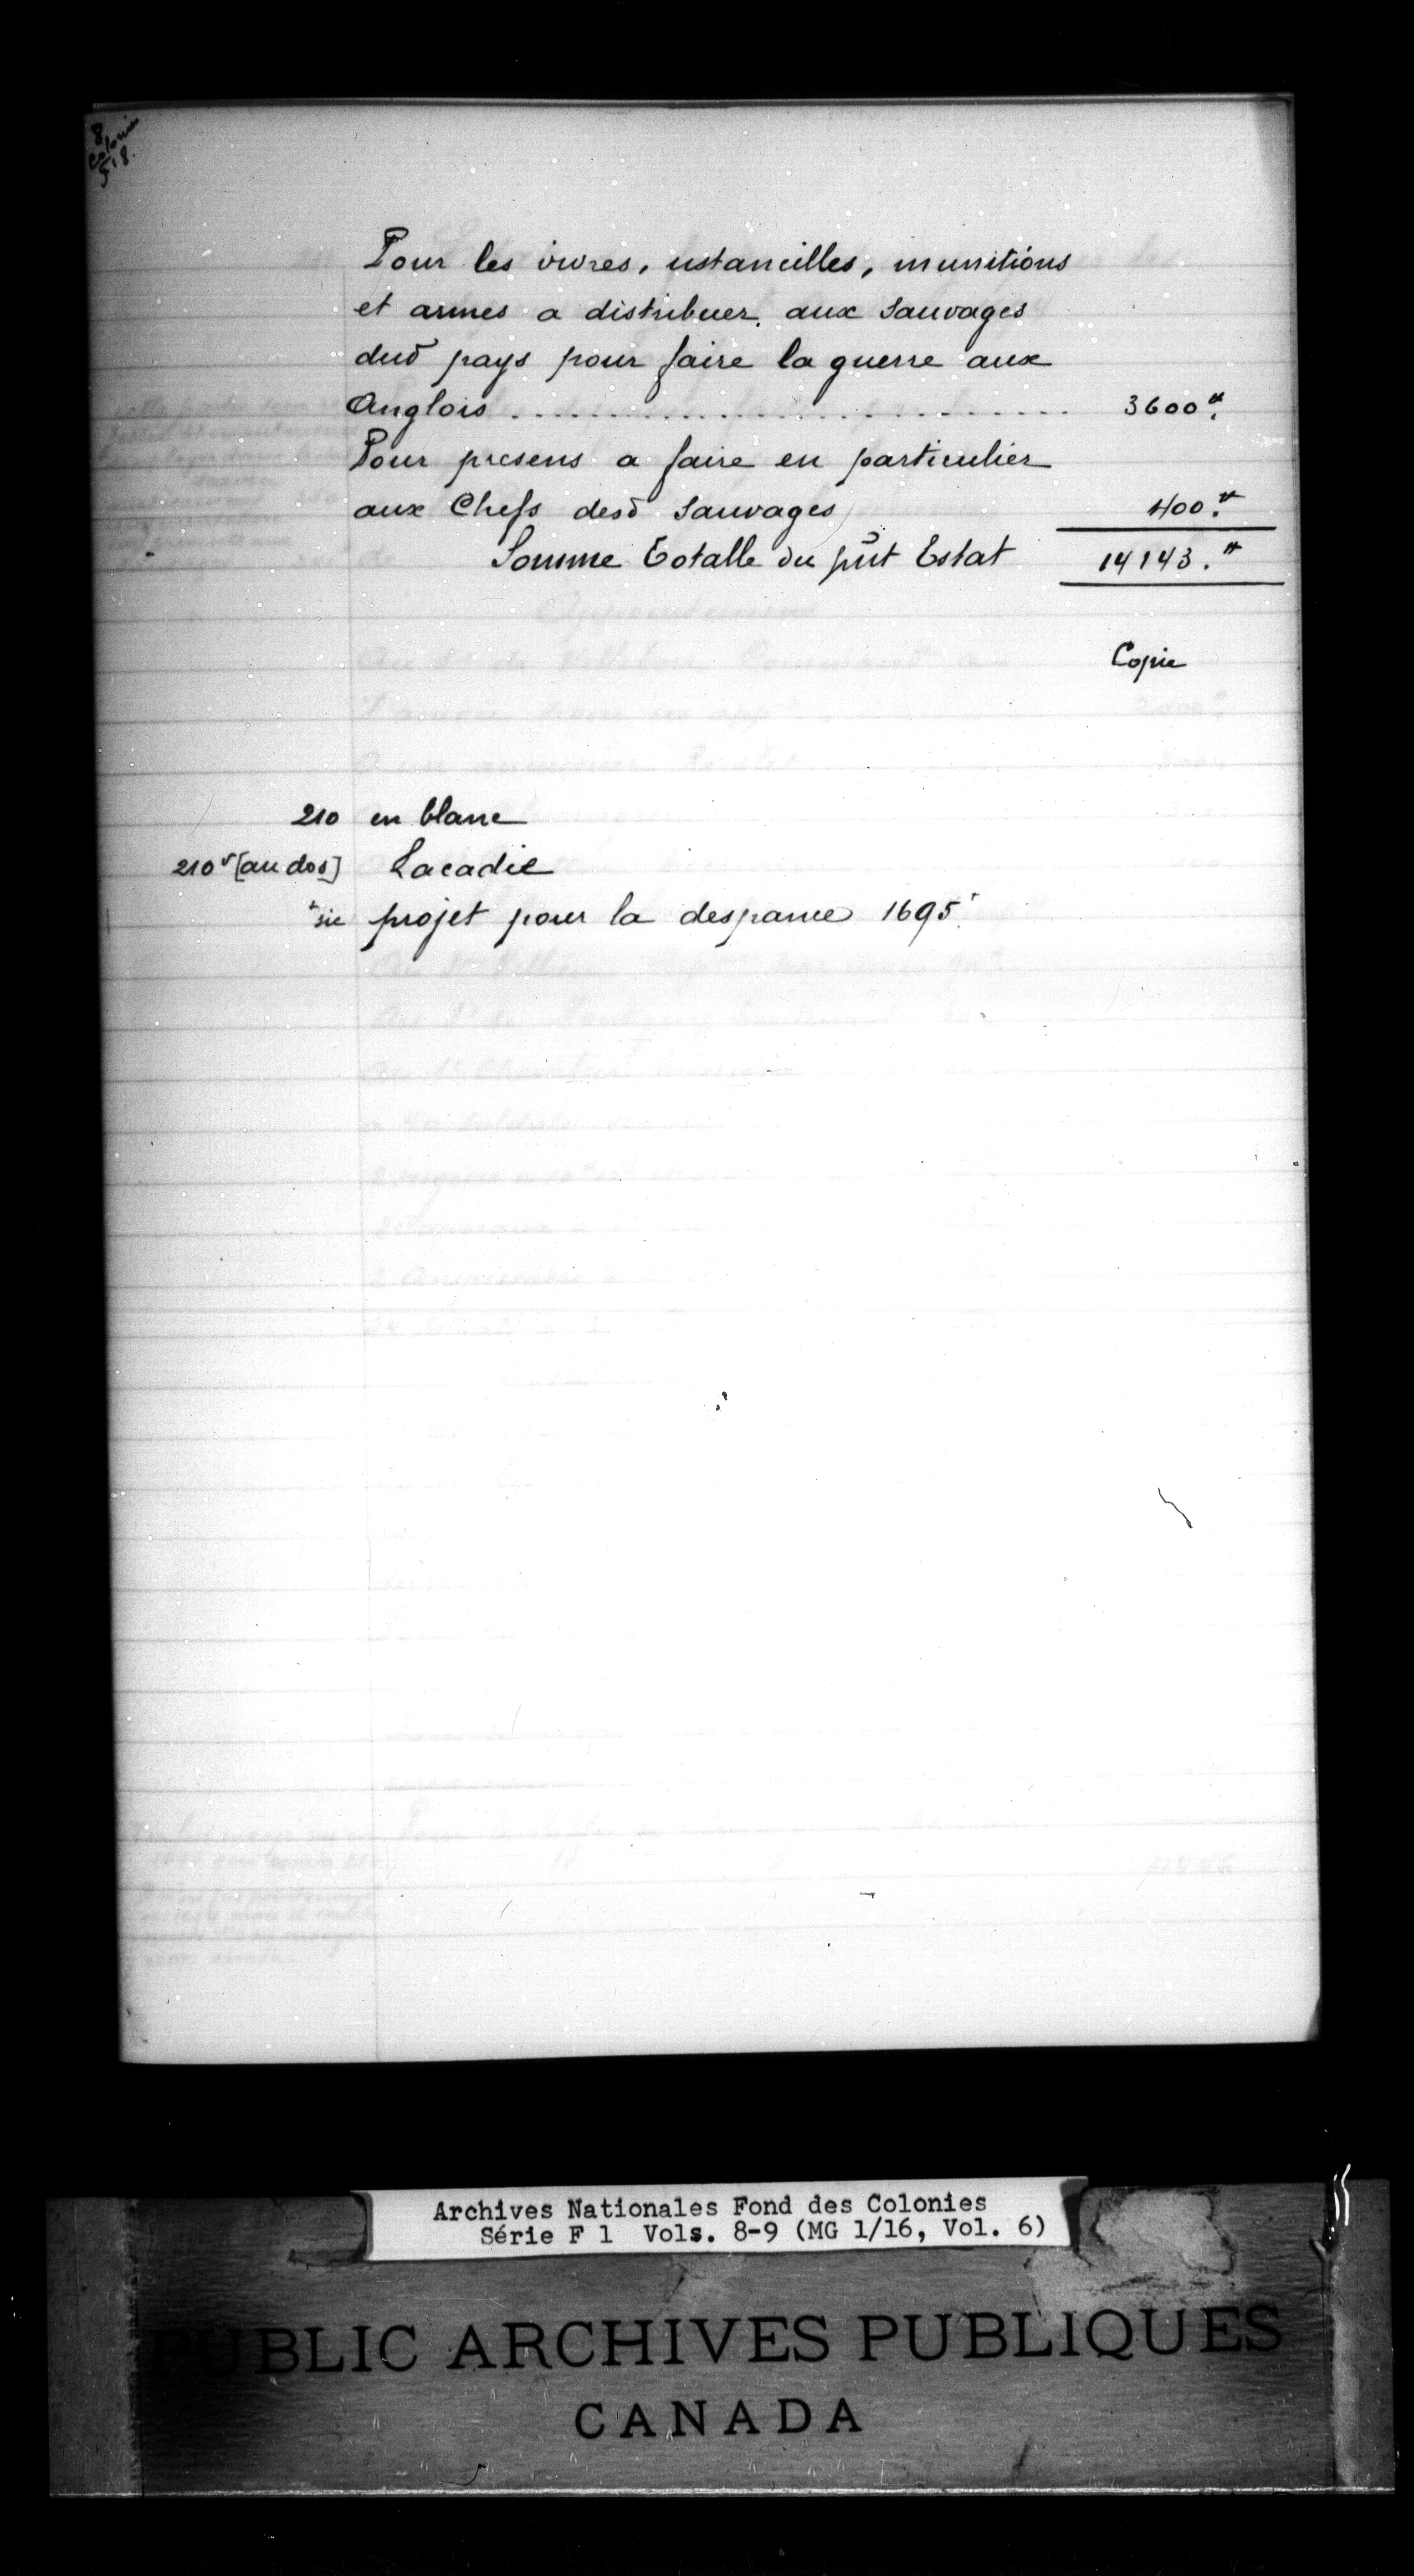 8
Colonies
F1 8.
Pour les vivres, ustancilles, munitions
et armes a distribuer aux Sauvages
dud pays pour faire la guerre aux
Anglois .............................. 3600ᵗᵗ.
Pour presens a faire en particulier
aux Chefs desd Sauvages 400.ᵗᵗ
Somme Totalle du pñt Estat 14143.ᵗᵗ
Copie
210 en blanc
210 v [au dos] Lacadie
+sic projet pour la despance 1695+
Archives Nationales Fond des Colonies
Série F 1 Vols. 8-9 (MG 1/16, Vol. 6)
PUBLIC ARCHIVES PUBLIQUES
CANADA